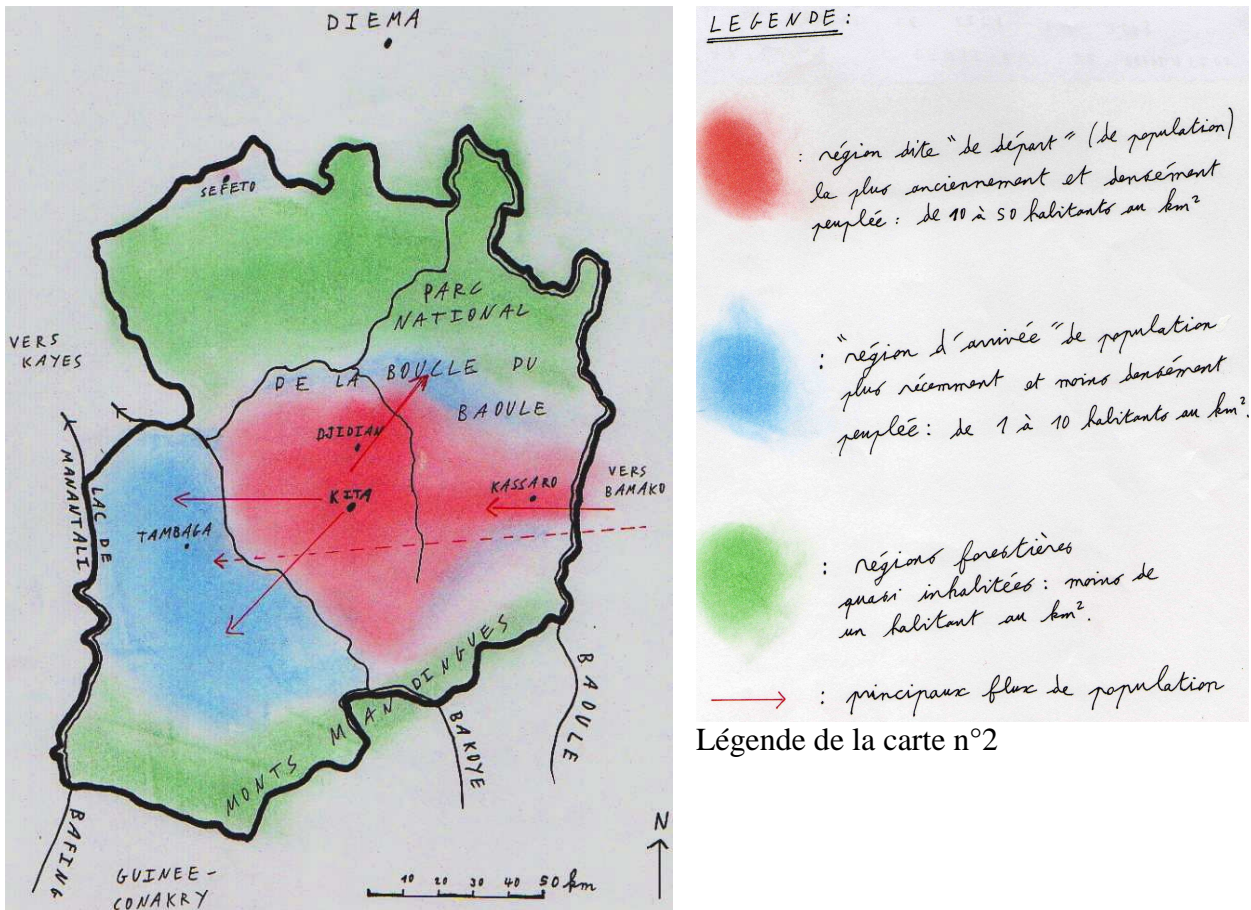 DIEMA
SEFETO
PARC
NATIONAL
VERS
KAYES
DE LA BOUCLE DU
BAOULE
DJIDIAN
KITA
KASSARO
VERS
BAMAKO
LAC DE
MANANTALI
TAMBAGA
MONTS MANDINGUES
BAOULE
BAKOYE
BAFING
GUINEE-
CONAKRY
10 20 30 40 50 km
N
LEGENDE :
: région dite "de départ" (de population)
la plus anciennement et densément
peuplée : de 10 à 50 habitants au km²
: "région d'arrivée" de population
plus récemment et moins densément
peuplée : de 1 à 10 habitants au km².
: régions forestières
quasi inhabitées : moins de
un habitant au km².
: principaux flux de population
Légende de la carte n°2